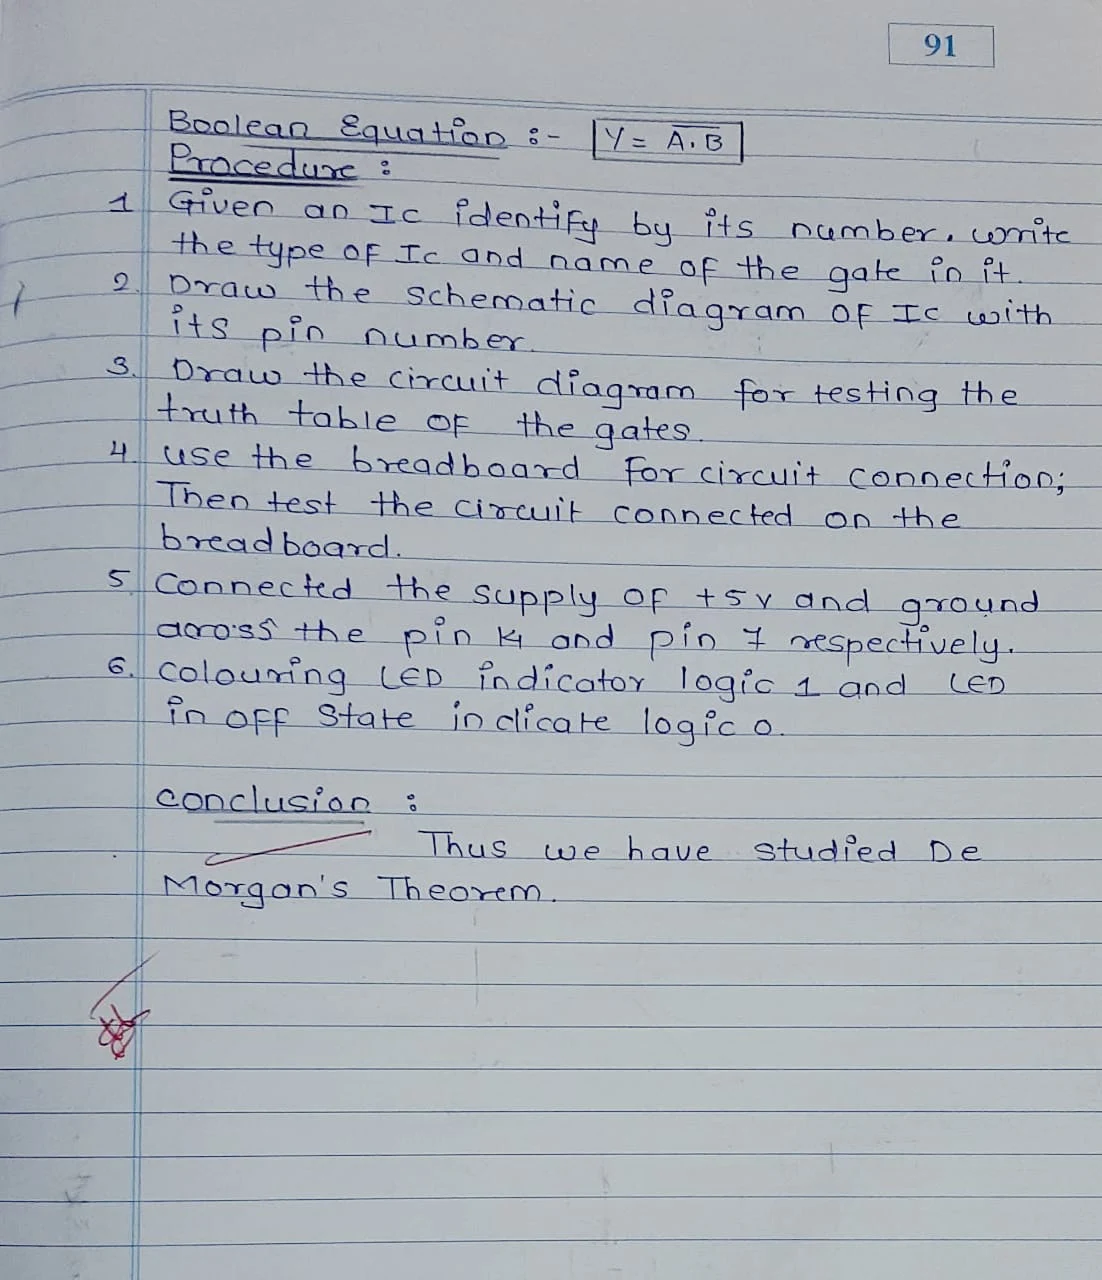 91
Boolean Equation :- Y = A̅.B̅
Procedure :
1 Given an Ic identify by its number. write
the type of Ic and name of the gate in it.
2. Draw the schematic diagram of Ic with
its pin number.
3. Draw the circuit diagram for testing the
truth table of the gates.
4 use the breadboard for circuit connection;
Then test the circuit connected on the
breadboard.
5 Connected the supply of +5v and ground
across the pin 14 and pin 7 respectively.
6. colouring LED indicator logic 1 and LED
in off state indicate logic 0.
conclusion :
Thus we have studied De
Morgan's Theorem.